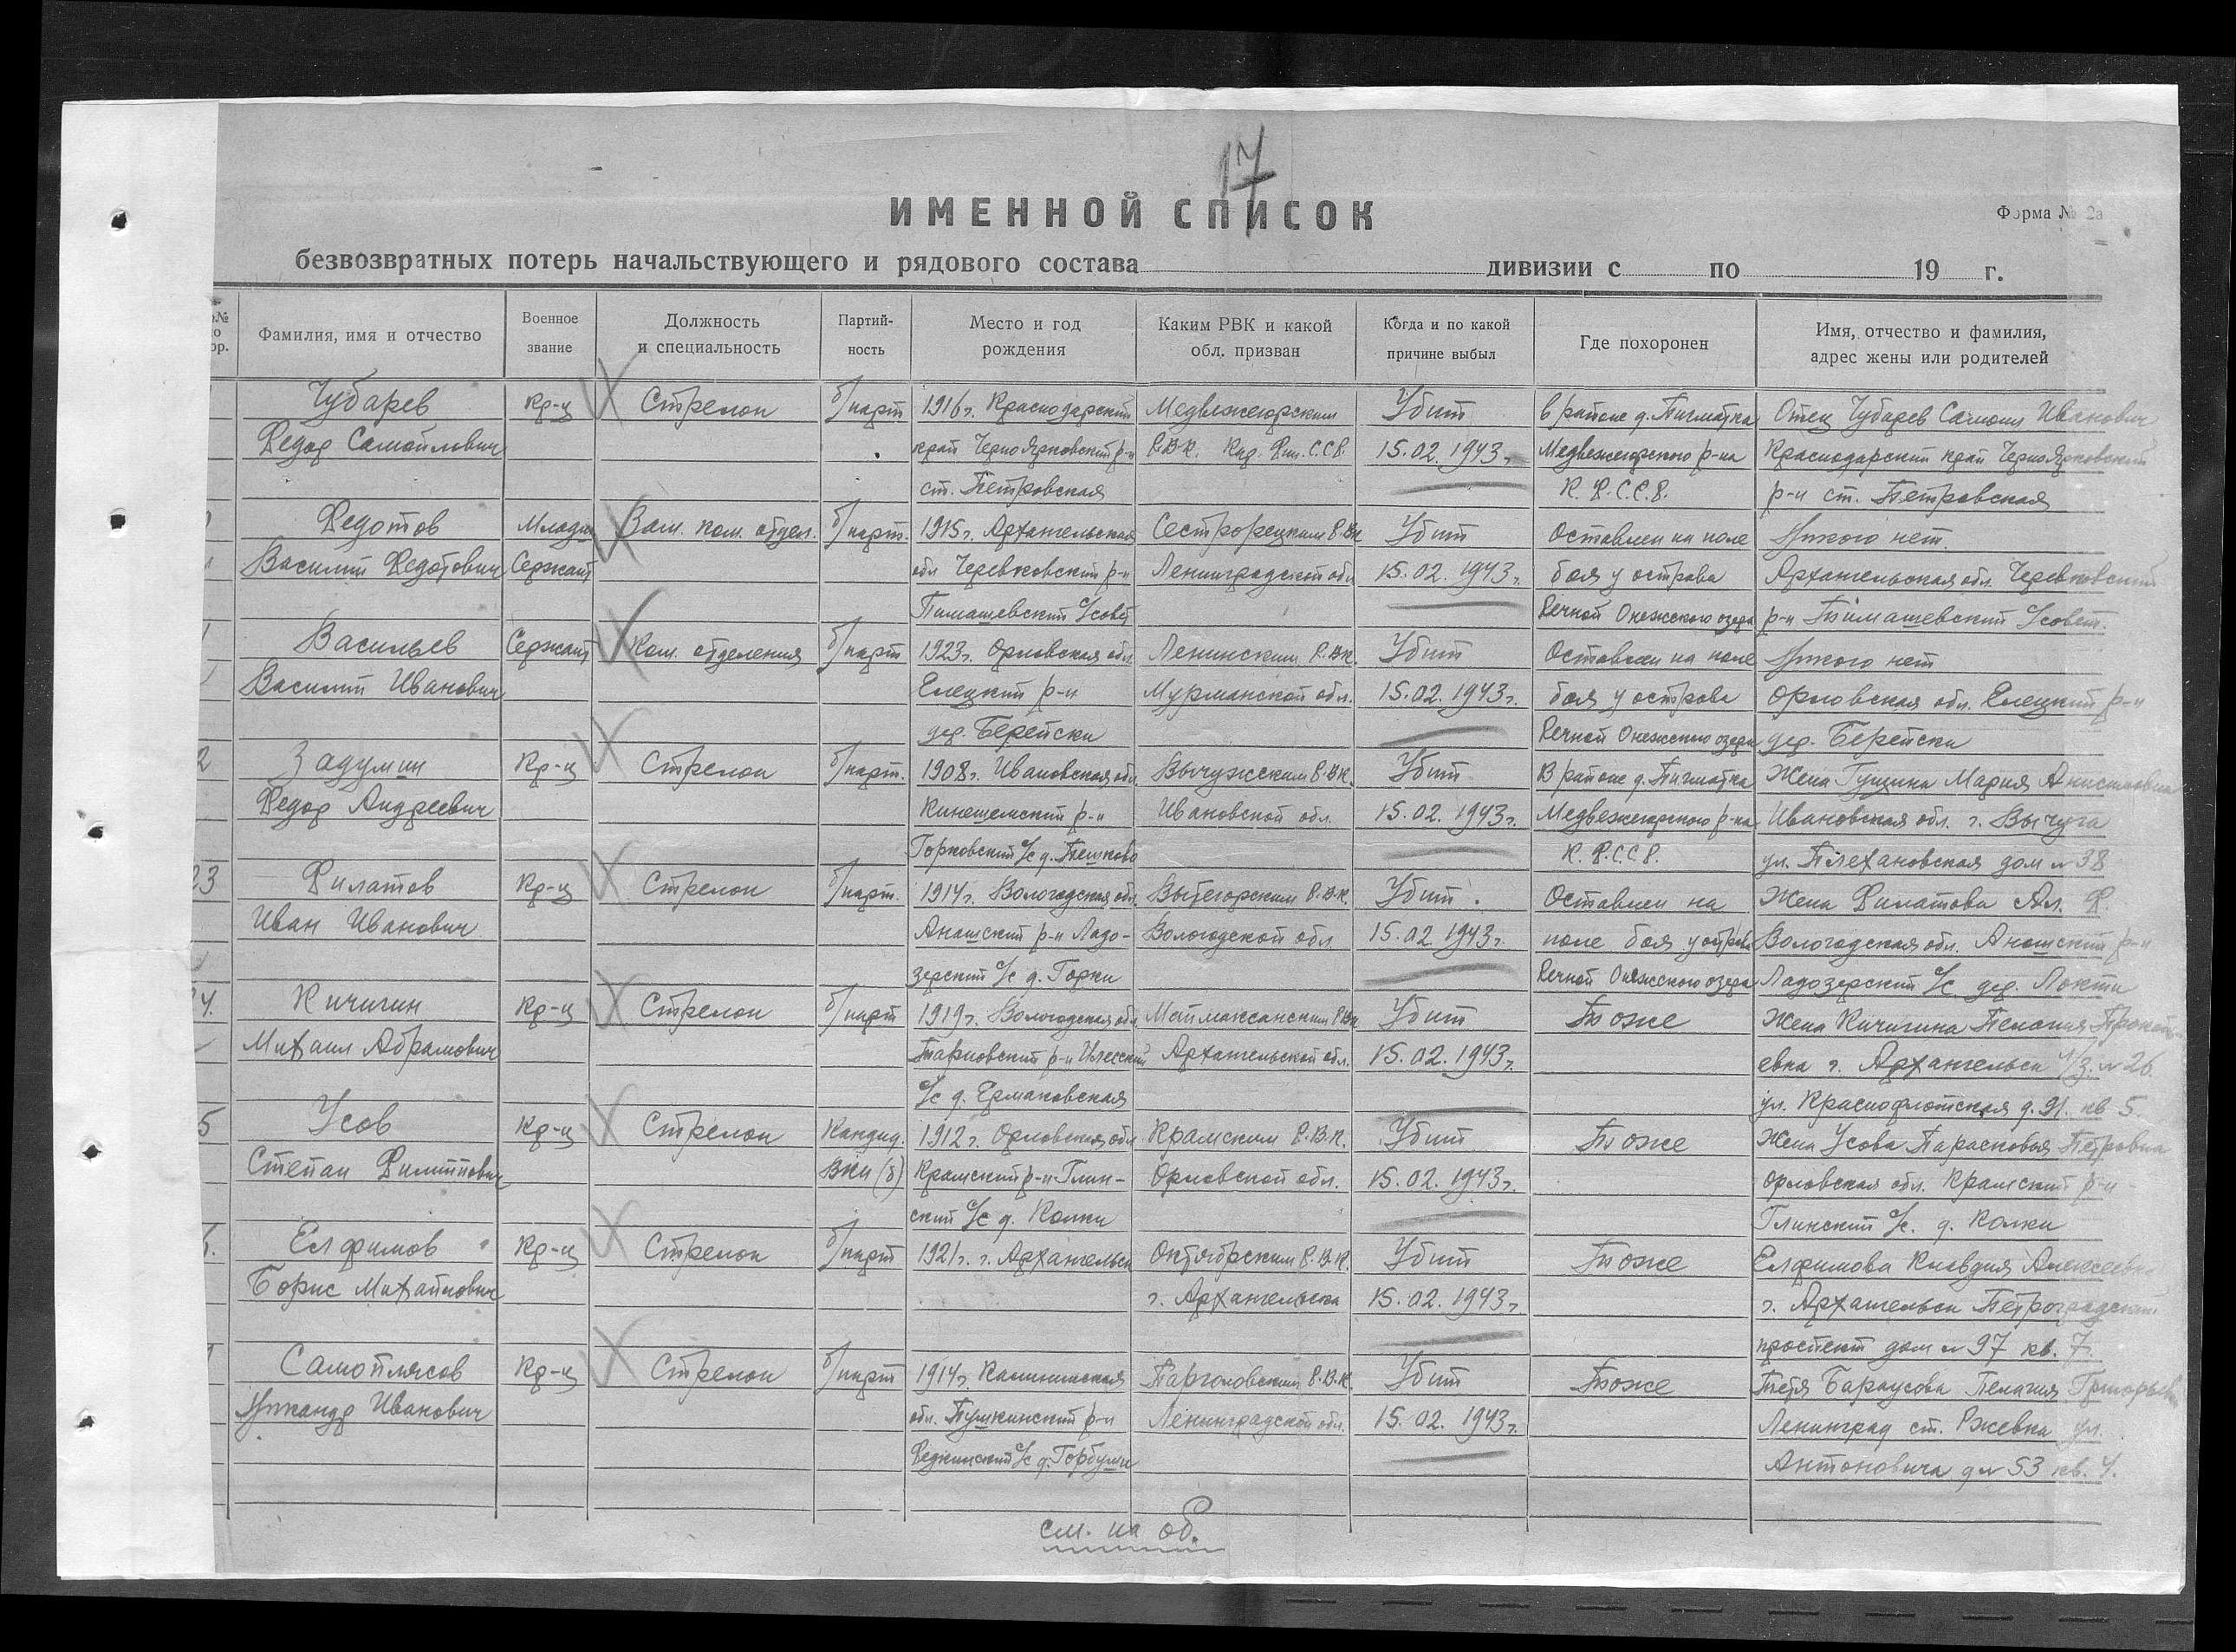 17
ИМЕННОЙ СПИСОК
Форма № 2а
безвозвратных потерь начальствующего и рядового состава дивизии с по 19 г.
Фамилия, имя и отчество
Военное звание
Должность и специальность
Партийность
Место и год рождения
Каким РВК и какой обл. призван
Когда и по какой причине выбыл
Где похоронен
Имя, отчество и фамилия, адрес жены или родителей
Чубарев Кр-ц Стрелок б/парт 1916 г. Краснодарский Медвежегорским Убит в районе д. Пигматка Отец Чубарев Самоил Иванович
Федор Самойлович край ЧерноЯрковский р-н Р.В.К. Кар. Фин. С.С.Р. 15.02.1943 г. Медвежегорского р-на Краснодарский край ЧерноЯрковский
ст. Петровская К.Ф.С.С.Р. р-н ст. Петровская
Федотов Младш Зам. ком. отдел. б/парт. 1915 г. Архангельская Сестрорецким Р.В.К Убит Оставлен на поле Никого нет.
Василий Федотович Сержант обл Черевковский р-н Ленинградской обл 15.02.1943 г. боя у острова Архангельская обл. Черевковский
Тимашевский с/совет Речной Онежского озера р-н Тимашевский с/совет.
Васильев Сержант Ком. отделения б/парт 1923 г. Орловская обл. Ленинским Р.В.К. Убит Оставлен на поле Никого нет
Василий Иванович Елецкий р-н Мурманской обл. 15.02.1943 г. боя у острова Орловская обл. Елецкий р-н
дер. Берейски Речной Онежского озера дер. Берейски
2 Задумин Кр-ц Стрелок б/парт. 1908 г. Ивановская обл. Вычужским Р.В.К. Убит В районе д. Пигматка Жена Гущина Мария
Федор Андреевич Кинешемский р-н Ивановской обл. 15.02.1943 г. Медвежегорского р-на Ивановская обл. г. Вычуга
Горковский с/с д. Пешково К.Ф.С.С.Р. ул. Плехановская дом № 38
23 Филатов Кр-ц Стрелок б/парт. 1914 г. Вологодская обл. Вытегорским Р.В.К. Убит. Оставлен на Жена Филатова Ал. Ф.
Иван Иванович Анашский р-н Ладо- Вологодской обл 15.02.1943 г. поле боя у острова Вологодская обл. Анашский р-н
зерский с/с д. Горки Речной Онежского озера Ладозерский с/с дер. Локти
4. Кичигин Кр-ц Стрелок б/парт 1919 г. Вологодская обл Маймаксанским РВК Убит То же Жена Кичигина Пелагия
Михаил Абрамович Тарновский р-н Илесский Архангельской обл. 15.02.1943 г. евна г. Архангельск л/з. № 26
с/с д. Ермаковская ул. Краснофлотская д. 91. кв 5.
5 Усов Кр-ц Стрелок Кандид. 1912 г. Орловская обл Крамским Р.В.К. Убит То же Жена Усова Парасковья Петровна
Степан Филиппович ВКП(б) Крамский р-н Глин- Орловской обл. 15.02.1943 г. Орловская обл. Крамский р-н
ский с/с д. Колки Глинский с/с. д. Колки
Елфимов Кр-ц Стрелок б/парт 1921 г. г. Архангельск Октябрьским Р.В.К. Убит То же Елфимова Клавдия Алексеевна
Борис Михайлович г. Архангельска 15.02.1943 г. г. Архангельск Петроградский
проспект дом № 97 кв. 7.
Самоплясов Кр-ц Стрелок б/парт 1914 г. Калининская Парголовским Р.В.К. Убит То же Тетя Бараусова Пелагия Григорьевна
Никандр Иванович обл. Пушкинский р-н Ленинградской обл. 15.02.1943 г. Ленинград ст. Ржевка ул.
Редкинский с/с д. Горбуши Антоновича д № 53 кв. 4.
см. на об.